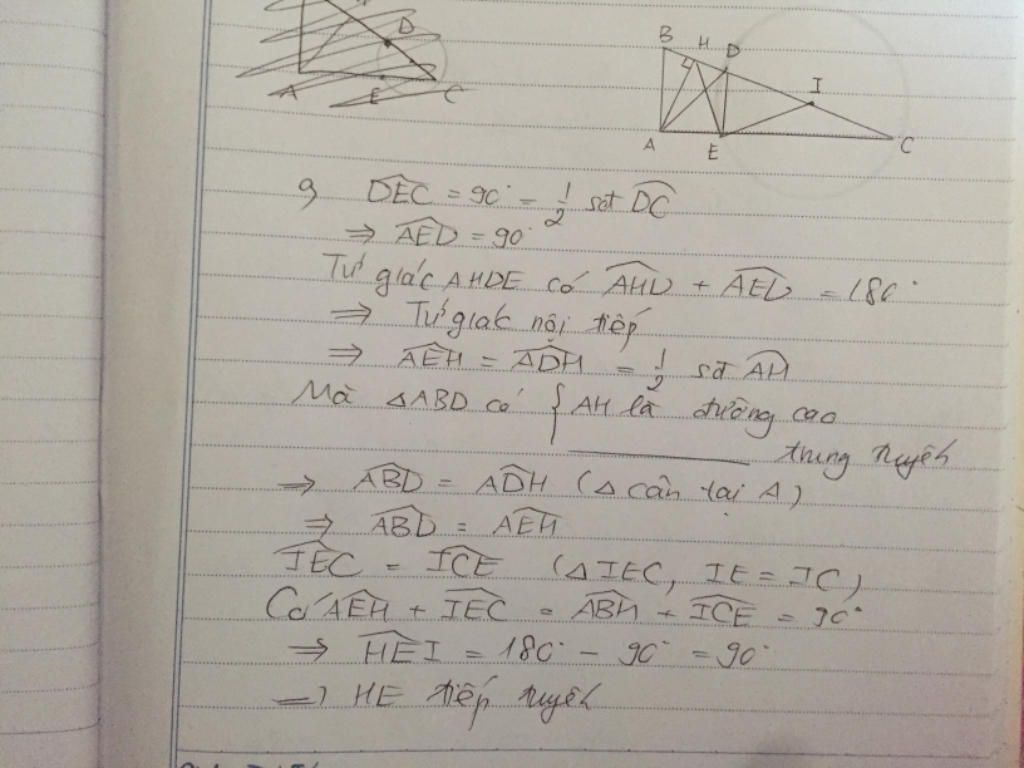 D
A E C
B H D
I
A E C
a) DEC = 90° = 1/2 sđ DC
⇒ AED = 90°
Tứ giác AHDE có AHD + AED = 180°
⇒ Tứ giác nội tiếp
⇒ AEH = ADH = 1/2 sđ AH
Mà △ABD có { AH là đường cao
——— trung tuyến
⇒ ABD = ADH (△ cân tại A)
⇒ ABD = AEH
IEC = ICE (△IEC, IE = IC)
Có AEH + IEC = ABH + ICE = 90°
⇒ HEI = 180° - 90° = 90°
⇒ HE tiếp tuyến